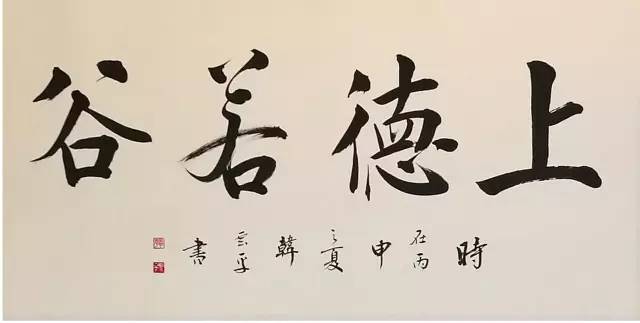 上德若谷
時在丙申之夏韓雲平書